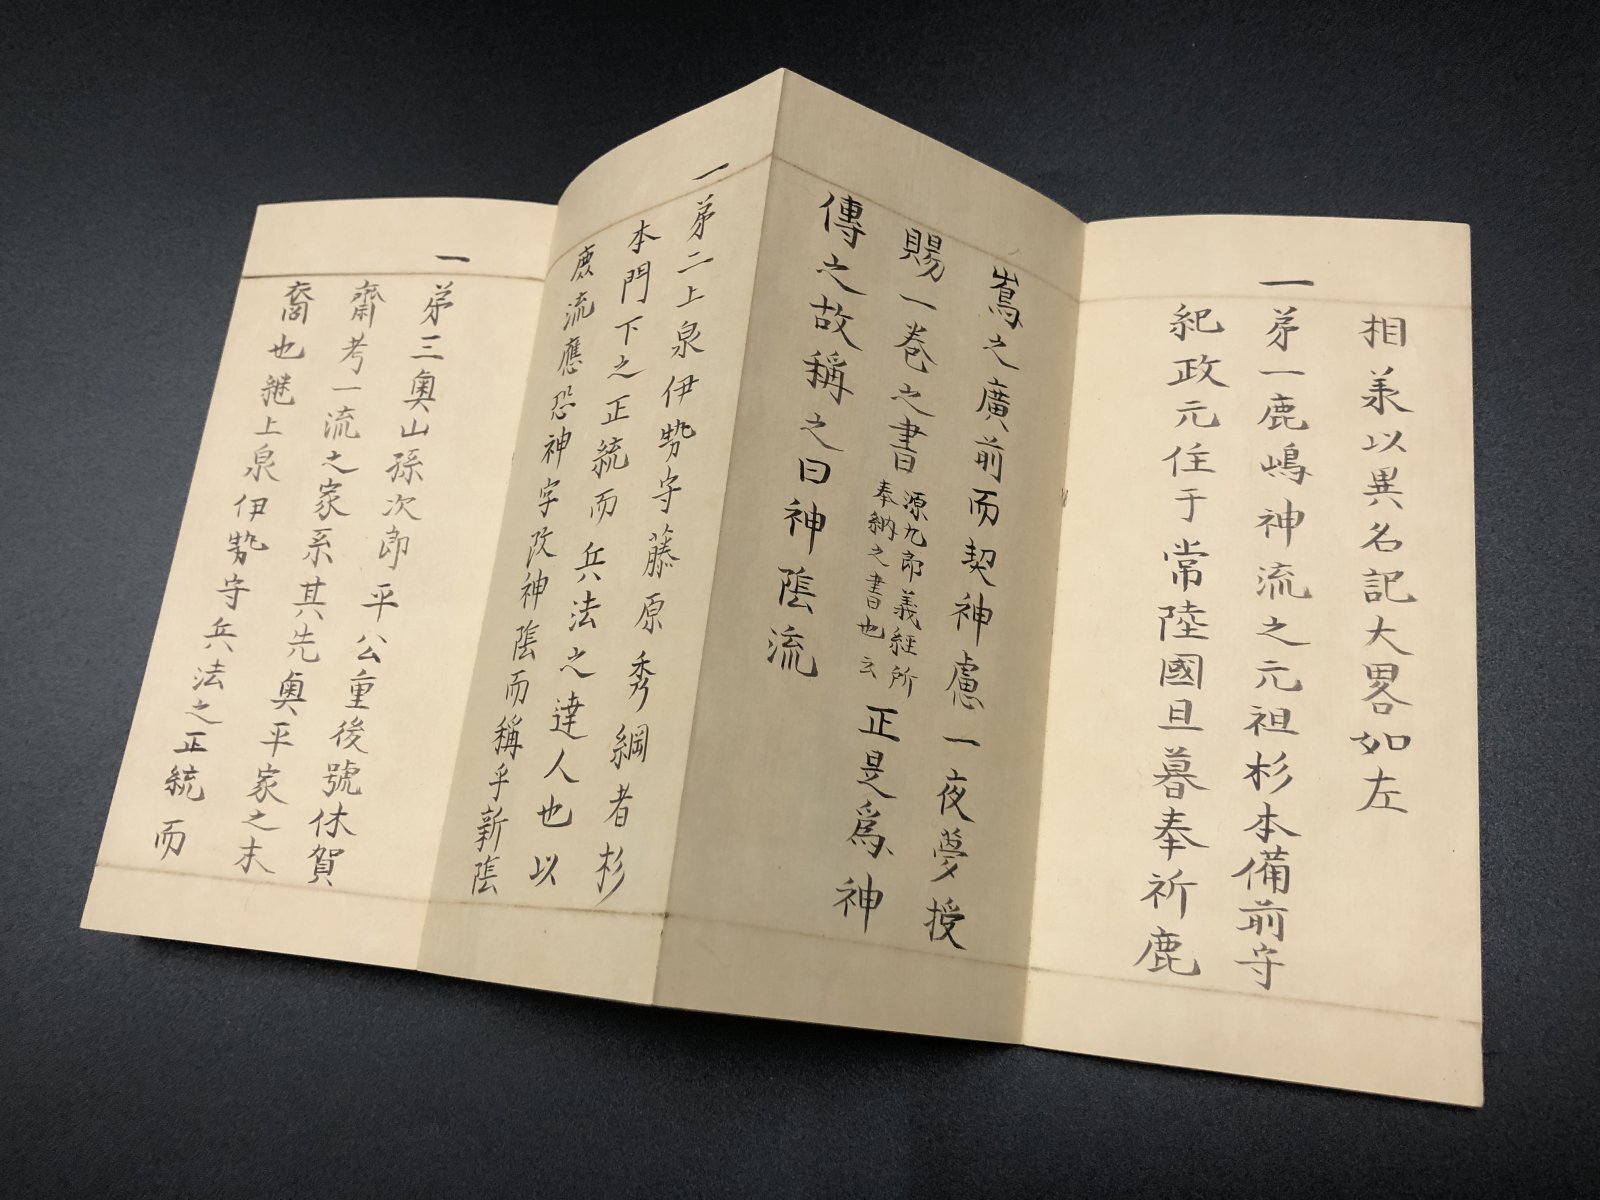 相羕以異名記大畧如左
一第一鹿嶋神流之元祖杉本備前守
紀政元住于常陸國旦暮奉祈鹿
嶌之廣前而契神慮一夜夢授
賜一巻之書源九郎義經所奉納之書也云正是爲神
傳之故稱之曰神隂流
一第二上泉伊㔟守藤原秀綱者杉
本門下之正統而兵法之達人也以
鹿流應恐神字改神隂而稱乎新隂
一第三奥山孫次郎平公重後號休賀
齋考一流之家系其先奥平家之末
裔也継上泉伊㔟守兵法之正統而